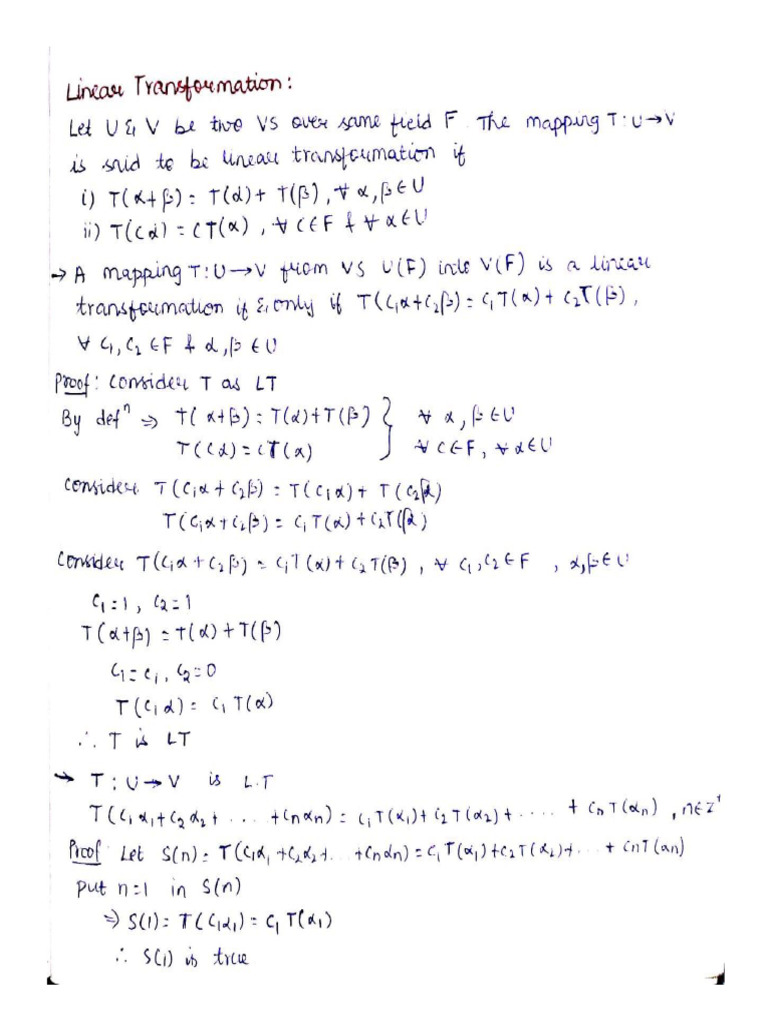 Linear Transformation:
Let U & V be two VS over same field F. The mapping T: U→V
is said to be linear transformation if
i) T(α+β) = T(α) + T(β), ∀ α, β ∈ U
ii) T(cα) = cT(α), ∀ c∈F & ∀ α∈U
→ A mapping T: U→V from VS U(F) into V(F) is a linear
transformation if & only if T(c₁α+c₂β) = c₁T(α) + c₂T(β),
∀ c₁, c₂ ∈F & α, β ∈ U
Proof: Consider T as LT
By defⁿ ⇒ T(α+β) = T(α)+T(β) } ∀ α, β∈U
T(cα) = cT(α) } ∀ c∈F, ∀ α∈U
Consider T(c₁α + c₂β) = T(c₁α) + T(c₂β)
T(c₁α + c₂β) = c₁T(α) + c₂T(β)
Consider T(c₁α + c₂β) = c₁T(α) + c₂T(β), ∀ c₁, c₂∈F , α, β∈U
c₁=1, c₂=1
T(α+β) = T(α) + T(β)
c₁=c₁, c₂=0
T(c₁α) = c₁T(α)
∴ T is LT
→ T: U→V is L.T
T(c₁α₁+c₂α₂+ . . . +cₙαₙ) = c₁T(α₁) + c₂T(α₂) + . . . . + cₙT(αₙ), n∈Z⁺
Proof Let S(n) = T(c₁α₁ +c₂α₂+ . . +cₙαₙ) = c₁T(α₁)+c₂T(α₂)+ . . . + cnT(an)
Put n=1 in S(n)
⇒ S(1) = T(c₁α₁) = c₁T(α₁)
∴ S(1) is true